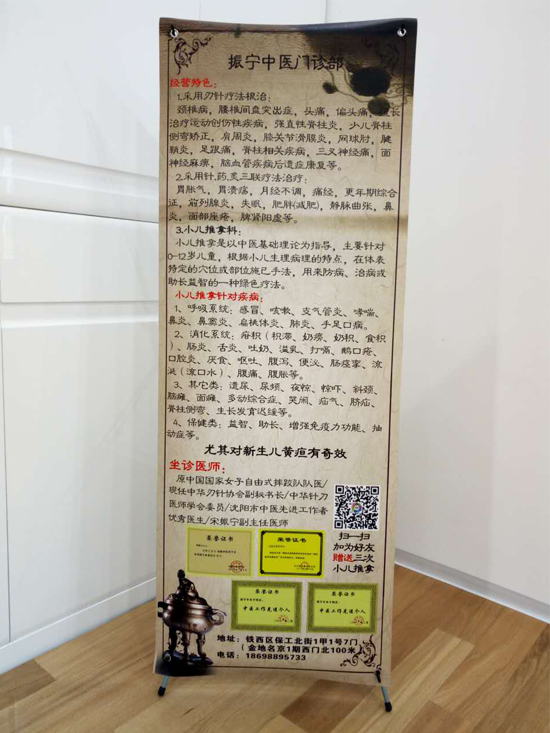 振宁中医门诊部
经营特色:
1.采用刃针疗法根治:
颈椎病, 腰椎间盘突出症, 头痛, 偏头痛,
治疗运动创伤性疾病, 强直性脊柱炎, 少儿脊柱
侧弯矫正, 肩周炎, 膝关节滑膜炎, 网球肘, 腱
鞘炎, 足跟痛, 脊柱相关疾病, 三叉神经痛, 面
神经麻痹, 脑血管疾病后遗症康复等。
2.采用针,药,灸三联疗法治疗:
胃胀气, 胃溃疡, 月经不调, 痛经, 更年期综合
证, 前列腺炎, 失眠, 肥胖(减肥), 静脉曲张, 鼻
炎, 面部痤疮, 脾肾阳虚等。
3.小儿推拿科:
小儿推拿是以中医基础理论为指导, 主要针对
0-12岁儿童, 根据小儿生理病理的特点, 在体表
特定的穴位或部位施已手法, 用来防病、治病或
助长益智的一种绿色疗法。
小儿推拿针对疾病:
1、呼吸系统: 感冒、咳嗽、支气管炎、哮喘、
鼻炎、鼻窦炎、扁桃体炎、肺炎、手足口病。
2、消化系统: 疳积 (积滞、奶痨、奶积、食积
)、肠炎、舌炎、吐奶、溢乳、打嗝、鹅口疮、
口腔炎、厌食、呕吐、腹泻、便泌、肠痉挛、流
涎 (流口水)、腹痛、腹胀等。
3、其它类: 遗尿、尿频、夜惊、惊吓、斜颈、
脑瘫、面瘫、多动综合症、哭闹、疝气、脐疝、
脊柱侧弯、生长发育迟缓等。
4、保健类: 益智、助长、增强免疫力功能、抽
动症等。
尤其对新生儿黄疸有奇效
坐诊医师:
原中国国家女子自由式摔跤队队医/
现任中华刃针协会副秘书长/中华针刀
医师学会委员/沈阳市中医先进工作者
优秀医生/宋振宁副主任医师
扫一扫
加为好友
赠送三次
小儿推拿
荣誉证书
荣誉证书
荣誉证书
中医工作先进个人
荣誉证书
中医工作先进个人
地址: 铁西区保工北街1甲1号7门
(金地名京1期西门北100米)
电话: 18698895733